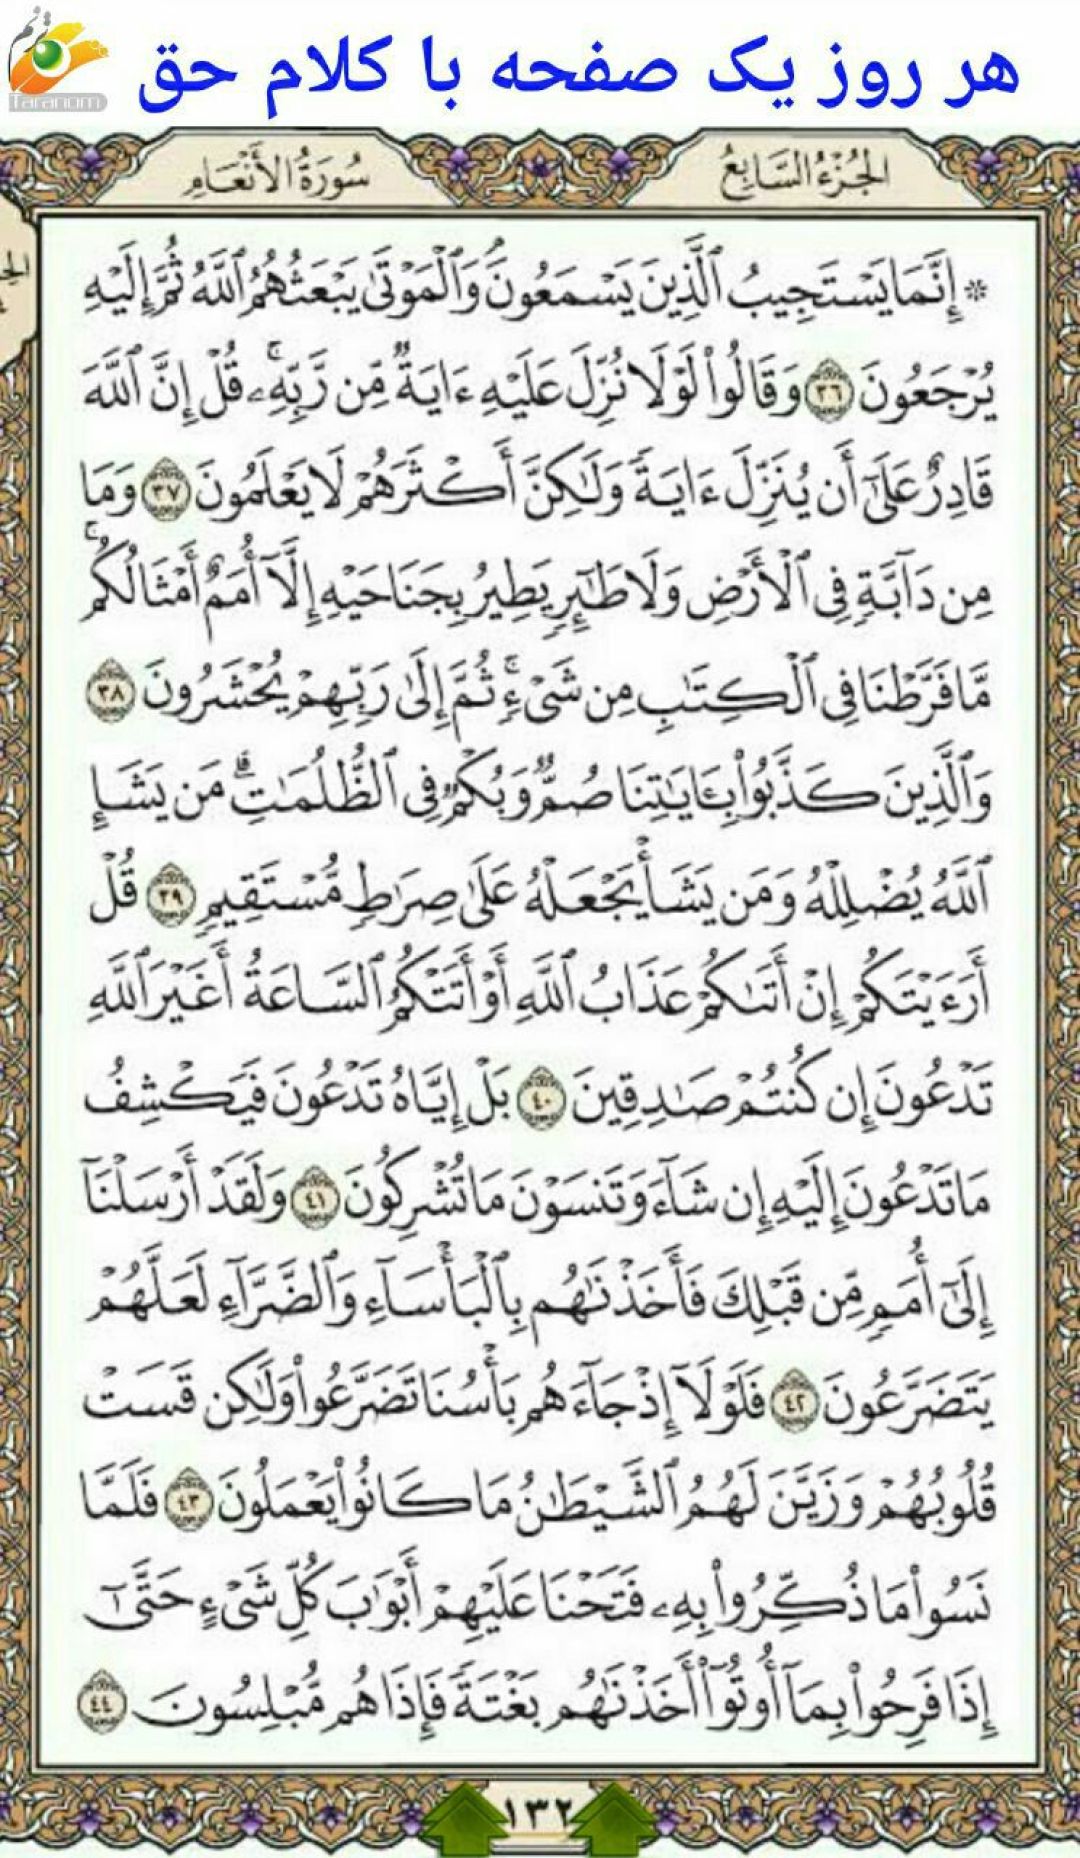 ترنم
taranom
هر روز یک صفحه با کلام حق
الجُزْءُ السَّابِعُ
سُورَةُ الأَنْعَام
۞ إِنَّمَا يَسْتَجِيبُ ٱلَّذِينَ يَسْمَعُونَۘ وَٱلْمَوْتَىٰ يَبْعَثُهُمُ ٱللَّهُ ثُمَّ إِلَيْهِ
يُرْجَعُونَ ٣٦ وَقَالُوا۟ لَوْلَا نُزِّلَ عَلَيْهِ ءَايَةٌ مِّن رَّبِّهِۦۚ قُلْ إِنَّ ٱللَّهَ
قَادِرٌ عَلَىٰٓ أَن يُنَزِّلَ ءَايَةً وَلَٰكِنَّ أَكْثَرَهُمْ لَا يَعْلَمُونَ ٣٧ وَمَا
مِن دَآبَّةٍ فِى ٱلْأَرْضِ وَلَا طَٰٓئِرٍ يَطِيرُ بِجَنَاحَيْهِ إِلَّآ أُمَمٌ أَمْثَالُكُمۚ
مَّا فَرَّطْنَا فِى ٱلْكِتَٰبِ مِن شَىْءٍۚ ثُمَّ إِلَىٰ رَبِّهِمْ يُحْشَرُونَ ٣٨
وَٱلَّذِينَ كَذَّبُوا۟ بِـَٔايَٰتِنَا صُمٌّ وَبُكْمٌ فِى ٱلظُّلُمَٰتِۗ مَن يَشَإِ
ٱللَّهُ يُضْلِلْهُ وَمَن يَشَأْ يَجْعَلْهُ عَلَىٰ صِرَٰطٍ مُّسْتَقِيمٍ ٣٩ قُلْ
أَرَءَيْتَكُمْ إِنْ أَتَىٰكُمْ عَذَابُ ٱللَّهِ أَوْ أَتَتْكُمُ ٱلسَّاعَةُ أَغَيْرَ ٱللَّهِ
تَدْعُونَ إِن كُنتُمْ صَٰدِقِينَ ٤٠ بَلْ إِيَّاهُ تَدْعُونَ فَيَكْشِفُ
مَا تَدْعُونَ إِلَيْهِ إِن شَآءَ وَتَنسَوْنَ مَا تُشْرِكُونَ ٤١ وَلَقَدْ أَرْسَلْنَآ
إِلَىٰٓ أُمَمٍ مِّن قَبْلِكَ فَأَخَذْنَٰهُم بِٱلْبَأْسَآءِ وَٱلضَّرَّآءِ لَعَلَّهُمْ
يَتَضَرَّعُونَ ٤٢ فَلَوْلَآ إِذْ جَآءَهُم بَأْسُنَا تَضَرَّعُوا۟ وَلَٰكِن قَسَتْ
قُلُوبُهُمْ وَزَيَّنَ لَهُمُ ٱلشَّيْطَٰنُ مَا كَانُوا۟ يَعْمَلُونَ ٤٣ فَلَمَّا
نَسُوا۟ مَا ذُكِّرُوا۟ بِهِۦ فَتَحْنَا عَلَيْهِمْ أَبْوَٰبَ كُلِّ شَىْءٍ حَتَّىٰٓ
إِذَا فَرِحُوا۟ بِمَآ أُوتُوٓا۟ أَخَذْنَٰهُم بَغْتَةً فَإِذَا هُم مُّبْلِسُونَ ٤٤
١٣٢